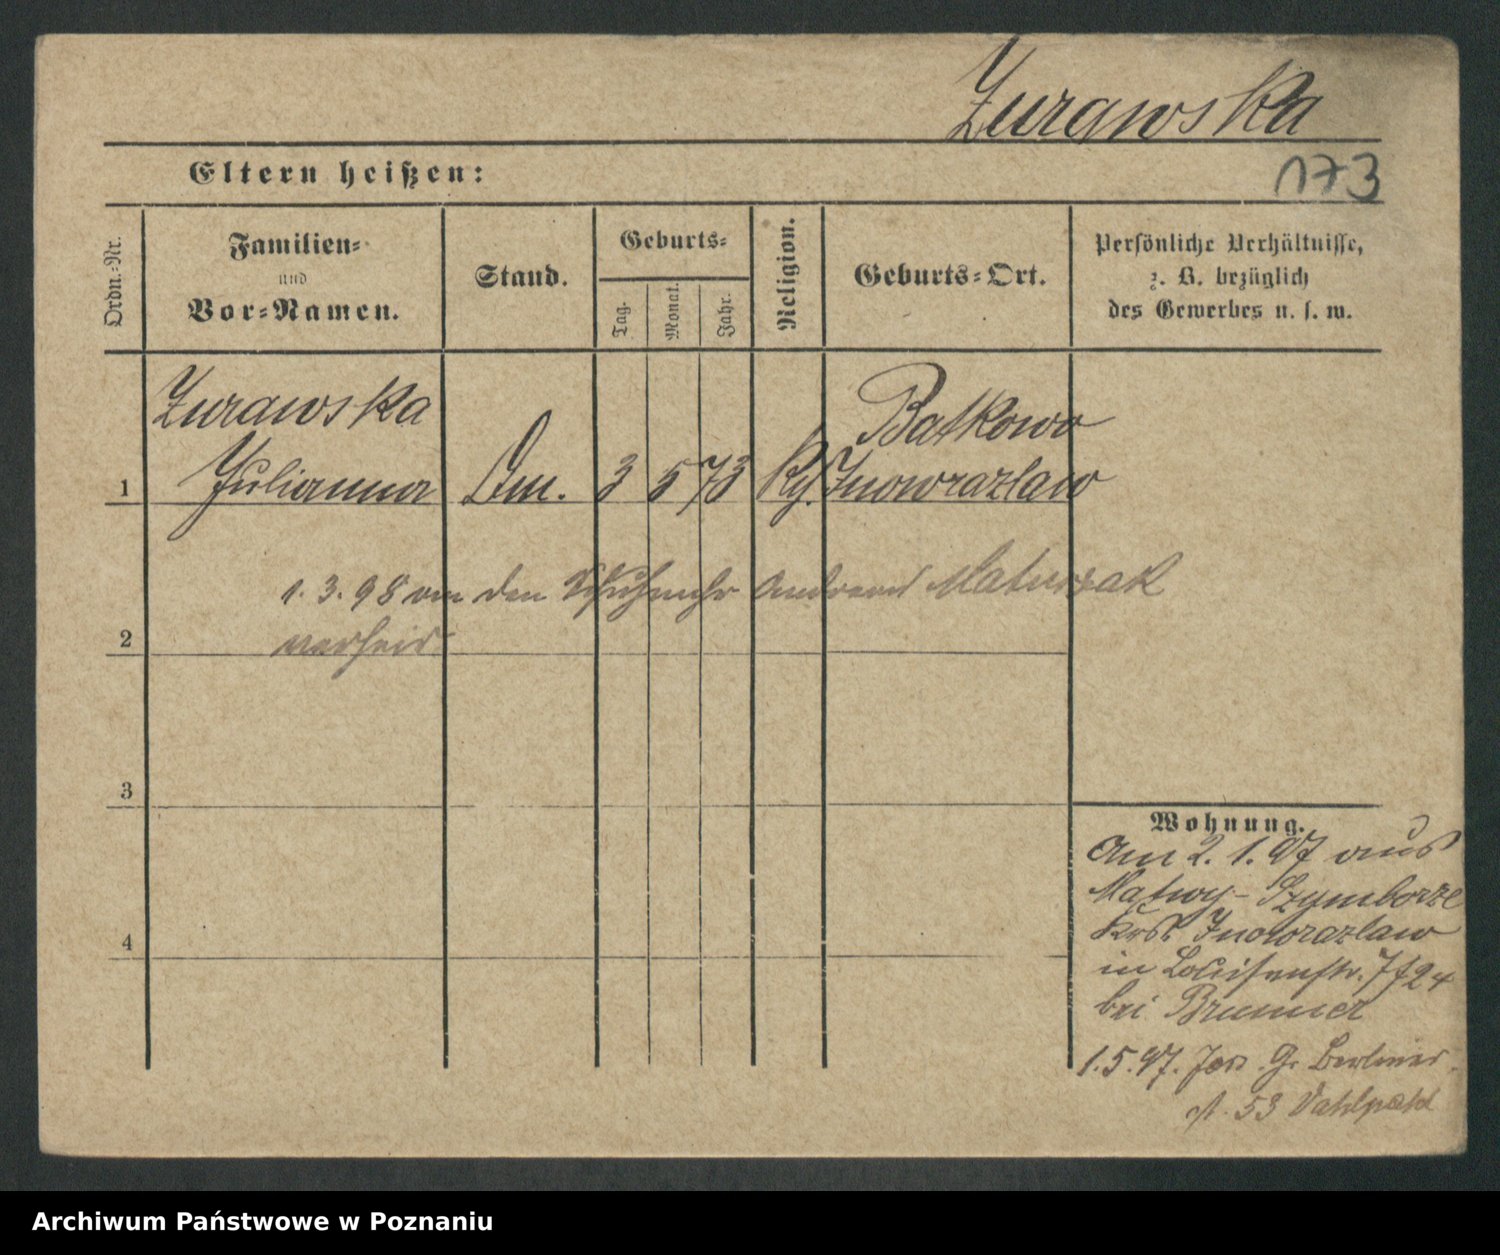 Żurawska
173
Eltern heißen:
Ordn.-Nr.
Familien-
und
Vor-Namen.
Stand.
Geburts-
Tag.
Monat.
Jahr.
Religion.
Geburts-Ort.
Persönliche Verhältnisse,
z. B. bezüglich
des Gewerbes u. s. w.
Żurawska
Julianna
1
3 5 73
Batkowo
Inowrazlaw
1. 3. 98 an den Andreas Matuszak
verheir
2
3
4
Wohnung.
Am 2. 1. 97 aus
Matwy- Szymborze
Inowrazlaw
in Louisenstr. 7
bei Brunner
1.5.97. Gr. Berliner
st. 53
Archiwum Państwowe w Poznaniu